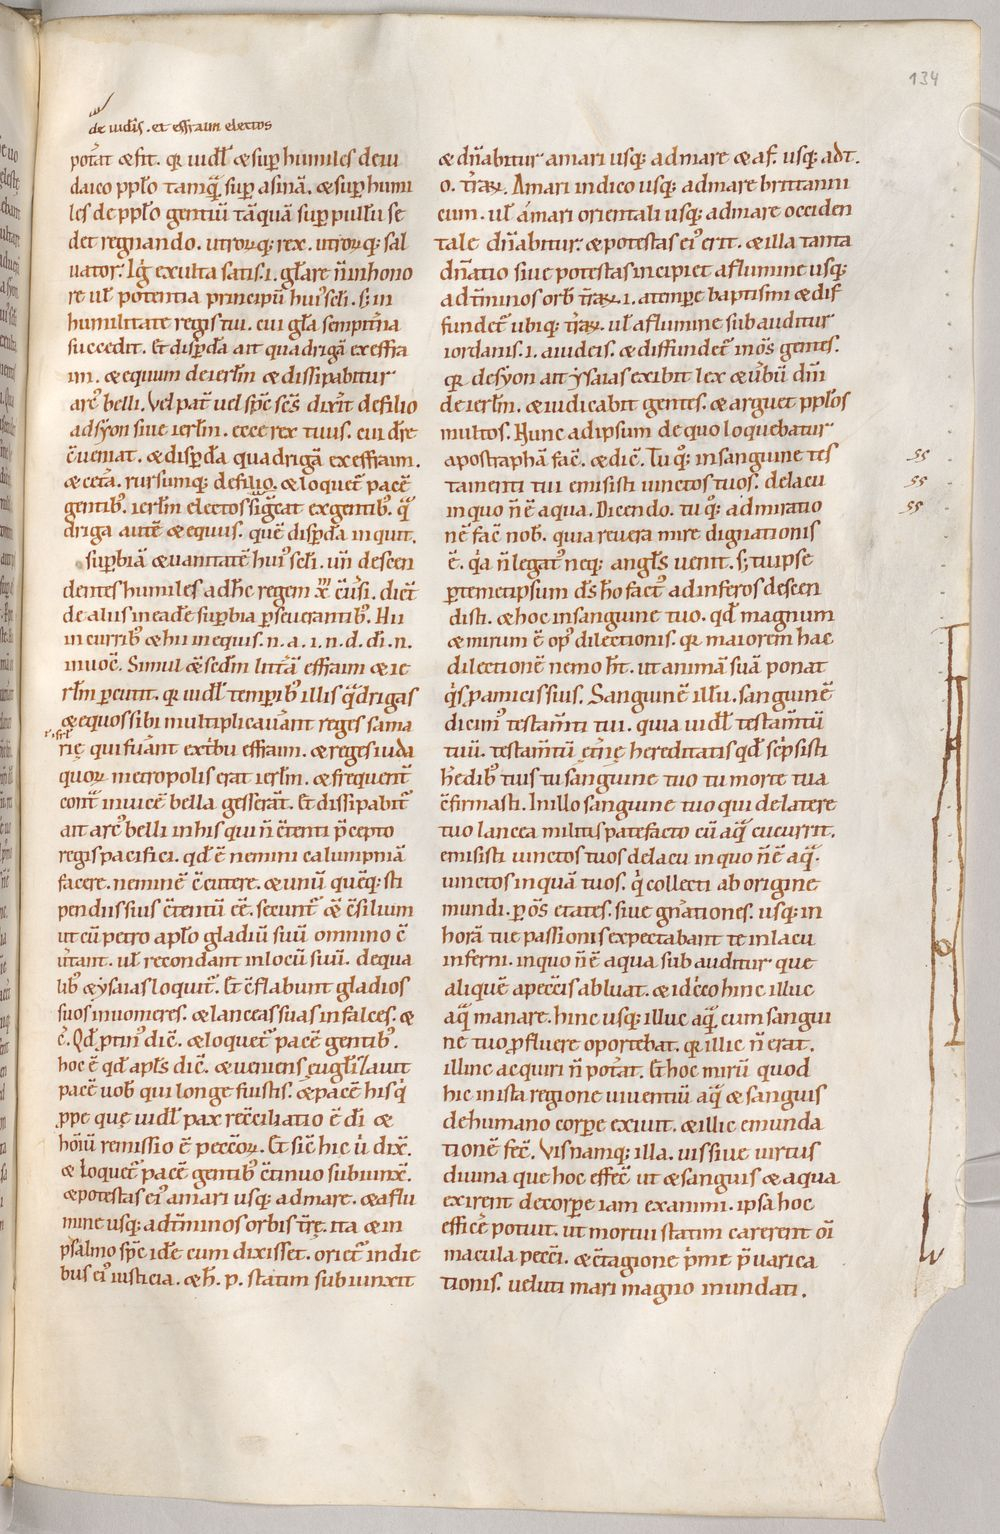 134
de iudęis . et effraim electos
potat & sit . qr uidł & sup humiles de iu
daico pp̄lo tamq̄ sup asinā . & sup humi
les de pp̄lo gentiū tāquā sup pullū se
det regnando . utrorūq; rex . utrorūq; sal
uator . Ig̃ exulta satis . i . głare n̄ in hono
re uł potentia principū hui᾽ sc̄li . s; in
humilitate regis tui . cui gła sempit̄na
succedit . Et disp̱da ait quadrigā ex effra
im . & equum de ierłm & dissipabitur
arc᾽ belli . Vel pat̄ uel sp̄c sc̄s dixit de filio
ad syon siue ierłm . ecce rex tuus . cui dr̄e
c̄ueniat . & disp̱da quadrigā ex effraim .
& cet̄a . rursumq; de filio . & loquet᾽ pacē
gentib᾽ . ierłm electos sig̃cat ex gentib᾽ . q̄
driga autē & equus . quē disp̱da inquit .
sup̱biā & uanitatē hui᾽ sc̄li . un̄ descen
dentes humiles adh᾽e regem xp̄m c̄uersi . dic̄t
de aliis in eadē sup̱bia p̱seuerantib᾽ . Hii
in currib᾽ & hii in equis . n . a . i . n . d . dī . n .
inuoc̄ . Simul & sc̄dm litt̄ā effraim & ie
rłm percutit . qr uidł temporib᾽ illis q̄drigas
& equos sibi multiplicauant reges sama
rię qui fuant ex tribu effraim . & reges iuda
quorū metropolis erat ierłm . & frequent̄
cont̄ inuicē bella gesserat̄ . Et dissipabit᾽
ait arc᾽ belli in his qui n̄ c̄tenti p̄cepto
regis pacifici . qd̄ ē nemini calumpniā
facere . neminē c̄cutere . & unū quēq; sti
pendiis suis c̄tentū ēē . secunt᾽ & c̄silium
ut cū petro apło gladiū suū omnino ē
u̇tant . uł recondant in locū suū . de qua
lib᾽ & ysaias loquit᾽ . Et c̄flabunt gladios
suos in uomeres . & lanceas suas in falces . &
c᾽ . Qd̄ ꝓtin᾽ dic̄ . & loquet᾽ pacē gentib᾽ .
hoc ē qd̄ apłs dic̄ . & ueniens euglizauit
pacē uob̄ qui longe fuistis . & pacē his q̇
ppe quę uidł pax rec̄ciliatio ē dī &
hoīū remissio ē peccōrū . Et sic̄ hic u̇ dix̄ .
& loquet᾽ pacē gentib᾽ c̄tinuo subiunx̄ .
& potestas ei᾽ a mari usq; ad mare . & a flu
mine usq; ad t̄minos orbis t̄rę . ita & in
psalmo sp̄c idē cum dixisset . oriet᾽ in die
bus ei᾽ iusticia . & h̄ . p . statim subiunxit
& dn̄abitur a mari usq; ad mare & a f . usq; ad t .
o . t̄rarū . A mari indico usq; ad mare brittanni
cum . uł a mari orientali usq; ad mare occiden
tale dn̄abitur . & potestas ei᾽ erit . & illa tanta
dn̄atio siue potestas incipiet a flumine usq;
ad t̄minos orb̄ t̄rarū . i . a tempe baptismi & dif
fundet᾽ ubiq; t̄rarū . uł a flumine subauditur
iordanis . i . a iudeis . & diffundet᾽ in om̄s gentes .
qr de syon ait ysaias exibit lex & u̇bū dn̄i
de ierłm . & iudicabit gentes . & arguet pp̄los
multos . Hunc ad ipsum de quo loquebatur
apostraphā fac̄ . & dic̄ . Tu q᾽; in sanguine tes
tamenti tui emisisti uinctos tuos . de lacu
in quo n̄ ē aqua . Dicendo . tu q᾽; admiratio
nē fac̄ nob̄ . quia reuera mire dignationis
ē . q̇a n̄ legat᾽ neq; angłs uenit . s; tu ipse
p̱temetipsum ds̄ ho fact᾽ ad inferos descen
disti . & hoc in sanguine tuo . qd̄ magnum
& mirum ē op᾽ dilectionis . qr maiorem hac
dilectionē nemo h̄t . ut animā suā ponat
q̇s p̱ amicis suis . Sanguinē illū . sanguinē
dicim᾽ testam̄ti tui . quia uidł testam̄tū
tuū . testam̄tū et̄nę hereditatis qd̄ sc̄psisti
h̄edib᾽ tuis tu sanguine tuo tu morte tua
c̄firmasti . In illo sanguine tuo qui de latere
tuo lancea militis patefacto cū aq̄ cucurrit .
emisisti uinctos tuos de lacu in quo n̄ ē aq̄ .
uinctos inquā tuos . q̇ collecti ab origine
mundi . p̱ om̄s etates . siue gn̄ationes . usq; in
horā tue passionis expectabant te in lacu
inferni . in quo n̄ ē aqua subauditur que
aliquē a pecc̄is abluat . & idc̄co hinc illuc
aq̄ manare . hinc usq; illuc aq̄ cum sangui
ne tuo ꝓfluere oportebat . qr illic n̄ erat .
illinc acquiri n̄ potat̄ . Et hoc mirū quod
hic in ista regione uiuentiū aq̄ & sanguis
de humano corpe exiuit . & illic emunda
tionē fec̄ . Vis namq; illa . uis siue uirtus
diuina que hoc effec̄ ut & sanguis & aqua
exirent de corpe iam exanimi . ipsa hoc
efficē potuit . ut mortui statim carerent oī
macula pecc̄i . & c̄tagione p̄me p̄uarica
tionis . ueluti mari magno inundati .